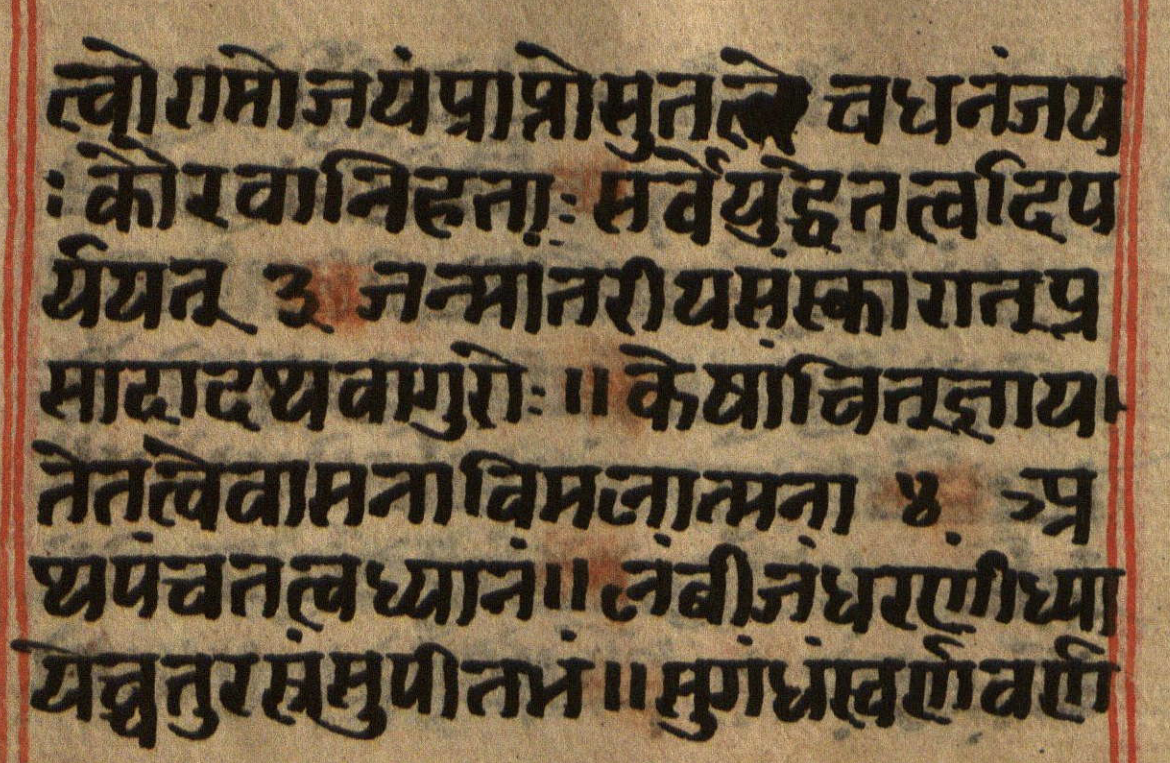 त्वोरामोजयंप्राप्नोसुतत्वे चधनंजय
ः कौरवानिहताः सर्वेयुद्धेतत्वविप
र्ययत् ३ जन्मांतरीयसंस्कारात्प्र
सादादथवागुरोः ॥ केषांचित्ज्ञाय
तेतत्वेवासनाविमलात्मना ४ अ
थपंचतत्वध्यानं ॥ लंबीजंधरणीध्या
येच्चतुरस्रंसुपीतभं ॥ सुगंधंस्वर्णवर्ण